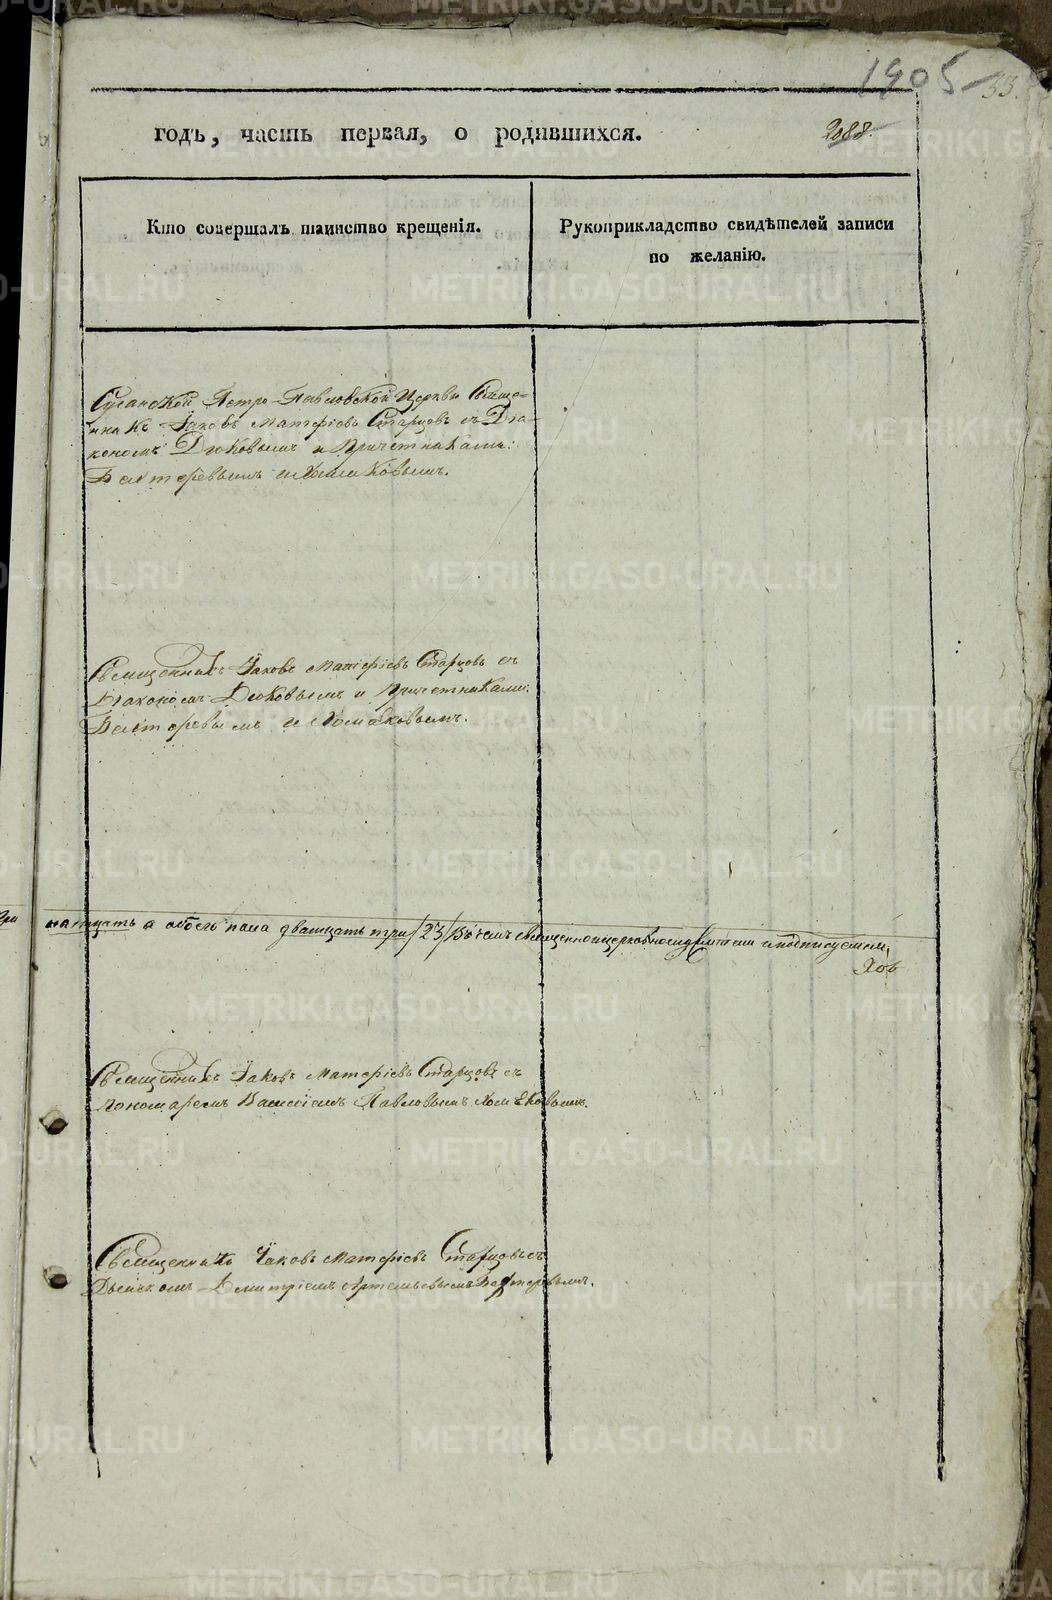 1905
33
годъ, часть первая, о родившихся.
2088.
Кто совершалъ таинство крещенія.
Рукоприкладство свидѣтелей записи
по желанію.
Сусанской Петро-Павловской Церкви Свяще-
нникъ Іаковъ Матфіевъ Старцовъ съ Діа-
кономъ Дюковымъ и Причетниками:
Бахтеревымъ и Хомяковымъ.
Священникъ Іаковъ Матфіевъ Старцовъ съ
Діакономъ Дюковымъ и Причетниками:
Бахтеревымъ и Хомяковымъ.
три надцать а обоего пола двадцать три /23/ Въ чемъ священноцерковнослужители и подписуемся.
Священникъ Іаковъ Матфіевъ Старцовъ съ
пономаремъ Василіемъ Павловымъ Хомяковымъ.
Священникъ Іаковъ Матфіевъ Старцовъ съ
Дьячкомъ Димитріемъ Артемьевымъ Бахтеревымъ.
METRIKI.GASO-URAL.RU